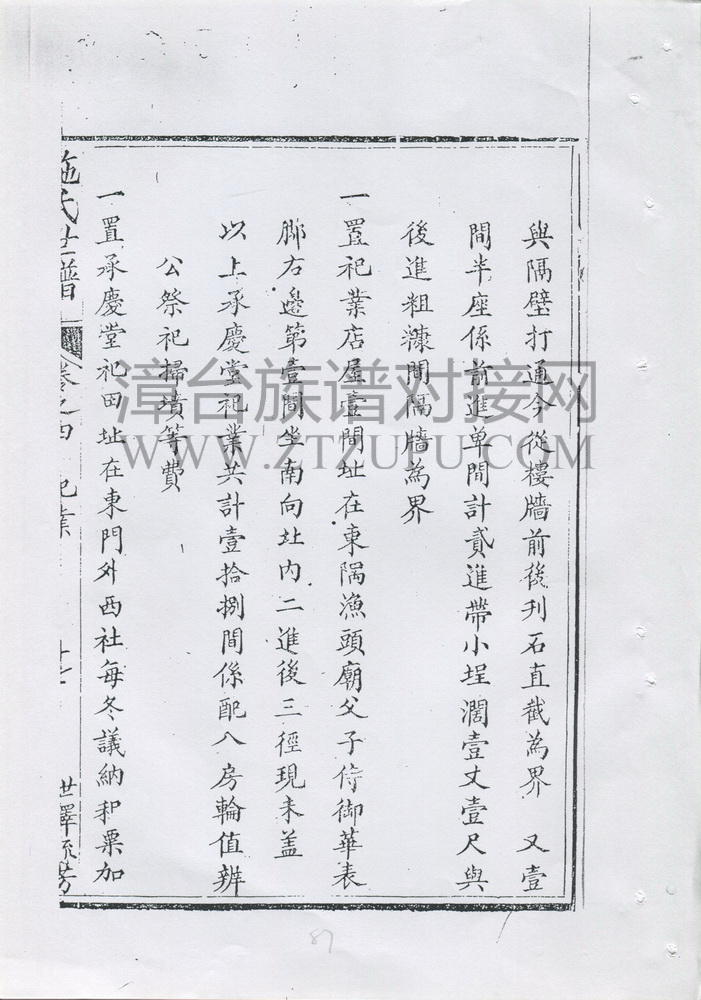 與隔壁打通今從樓牆前後刋石直截為界　又壹
間半座係前進單間計貳進帶小埕濶壹丈壹尺與
後進粗糠間隔牆為界
一置祀業店屋壹間址在東隅漁頭廟父子侍御華表
腳右邊第壹間坐南向北內二進後三徑現未盖
以上承慶堂祀業共計壹拾捌間係配八房輪值辨
公祭祀掃墳等費
一置承慶堂祀田址在東門外西社每冬議納和粟加
施氏世譜　卷之四　祀業　十七　世澤流芳
漳台族谱对接网
WWW.ZTZUPU.COM
87